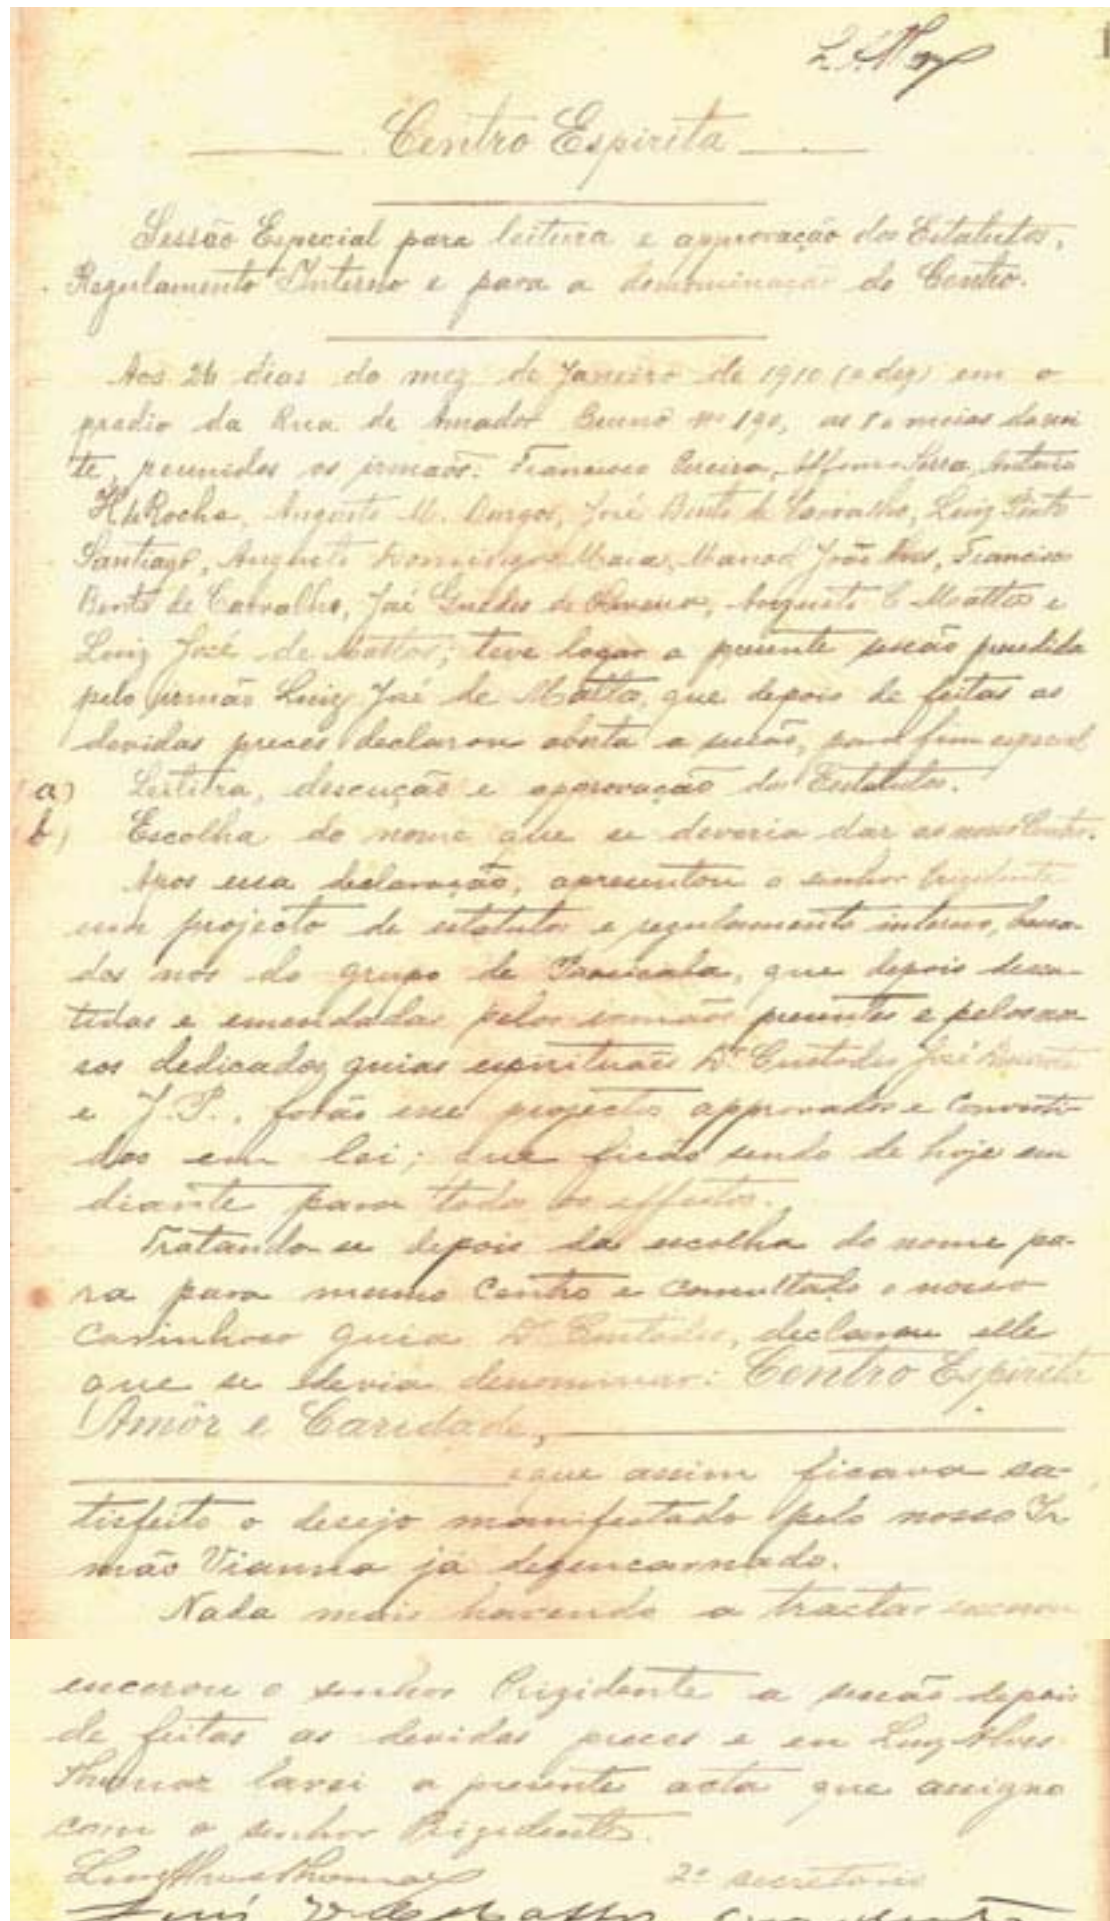 Centro Espirita
Sessão Especial para leitura e approvação dos Estatutos,
Regulamento Interno e para a denominação do Centro.
Aos 26 dias do mez de Janeiro de 1910 (e dez) em o
predio da Rua de Amador Bueno nº 190, as 8 e meias da noi
te, reunidos os irmaõs: Francisco Pereira, Affonso Serra, Antonio
H. da Rocha, Augusto M. Borges, José Bento de Carvalho, Luiz Pinto
Santiago, Augusto Domingos Maia, Manoel João Alves, Francisco
Bento de Carvalho, José Guedes de Oliveira, Augusto C Mattos e
Luiz José de Mattos; teve logar a presente sessão presidida
pelo irmão Luiz José de Mattos, que depois de feitas as
devidas preces declarou aberta a sessão, para fim especial
a) Leitura, descução e approvação dos Estatutos.
b) Escolha do nome que se deveria dar ao nosso Centro.
Apos essa declaração, apresentou o senhor Prezidente
um projecto de estatutos e regulamento interno, basea-
dos nos do grupo de que depois descu-
tidas e emendadas pelos irmaõs presentes e pelos nos-
sos dedicados guias espirituaes Dr. Custodio José Duarte
e J.P., forão esse projectos approvados e converti-
dos em lei; que ficão sendo de hoje em
diante para todos os effeitos.
Tratando se depois da escolha do nome pa-
ra para mesmo Centro e consultado o nosso
carinhoso guia Dr. Custodio, declarou elle
que se devia denominar: Centro Espirita
Amôr e Caridade,
e que assim ficava sa-
tisfeito o desejo manifestado pelo nosso Ir
mão Vianna já dezencarnado.
Nada mais havendo a tractar
encerou o senhor Prizidente a sessão depois
de feitas as devidas preces e eu Luiz Alves
Thomaz lavrei a presente acta que assigno
com o senhor Prizidente.
Luiz Alves Thomaz 2º secretario
Luiz J. de Mattos